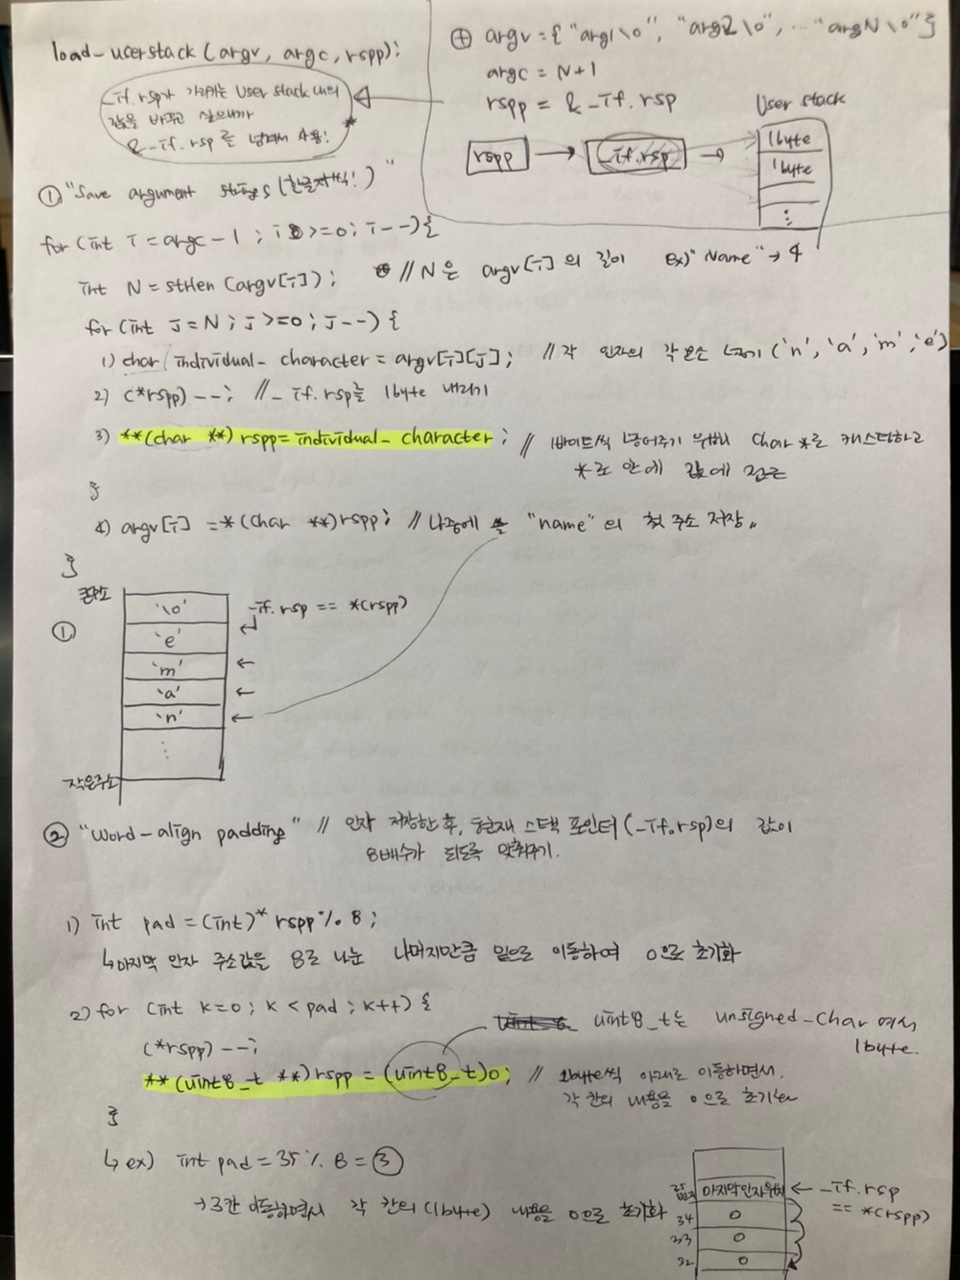 load-userstack (argv, argc, rspp):
_if.rsp가 가리키는 User stack 내의
값을 바꾸고 싶으니까
& _if.rsp 를 넘겨서 사용!
⊕ argv = { "arg1 \0", "arg2 \0", ... "argN \0" }
argc = N+1
rspp = & _if.rsp
User stack
rspp → _if.rsp →
1byte
1byte
⋮
① "Save argument strings (한글자씩!)"
for (int i = argc - 1 ; i >= 0 ; i--) {
int N = strlen (argv[i]); // N은 argv[i] 의 길이 ex) "Name" → 4
for (int j = N ; j >= 0 ; j--) {
1) char individual_character = argv[i][j]; // 각 인자의 각 원소 넣기 ('n', 'a', 'm', 'e')
2) (*rspp) --; // _if.rsp를 1byte 내리기
3) **(char **) rspp = individual_character ; // 1바이트씩 넣어주기 위해 char *로 캐스팅하고
*로 안에 값에 접근
}
4) argv[i] = *(char **)rspp; // 나중에 "name"의 첫 주소 저장
}
①
큰주소
'\0' _if.rsp == *(rspp)
'e'
'm' ←
'a' ←
'n' ←
⋮
작은주소
② "Word-align padding" // 인자 저장한 후, 현재 스택 포인터 (_if.rsp)의 값이
8배수가 되도록 맞춰주기.
1) int pad = (int)* rspp % 8 ;
↳ 마지막 인자 주소값을 8로 나눈 나머지만큼 밑으로 이동하여 0으로 초기화
2) for (int k=0 ; k < pad ; k++) {
uint8_t는 unsigned-char 여서
1byte.
(*rspp) --;
** (uint8_t **) rspp = (uint8_t)0; // 1byte씩 아래로 이동하면서,
각 칸의 내용을 0으로 초기화
}
↳ ex) int pad = 35 % 8 = ③
→ 3칸 이동하면서 각 칸의 (1byte) 내용을 0으로 초기화
35 마지막인자위치 ← _if.rsp
== *(rspp)
34 0
33 0
32 0